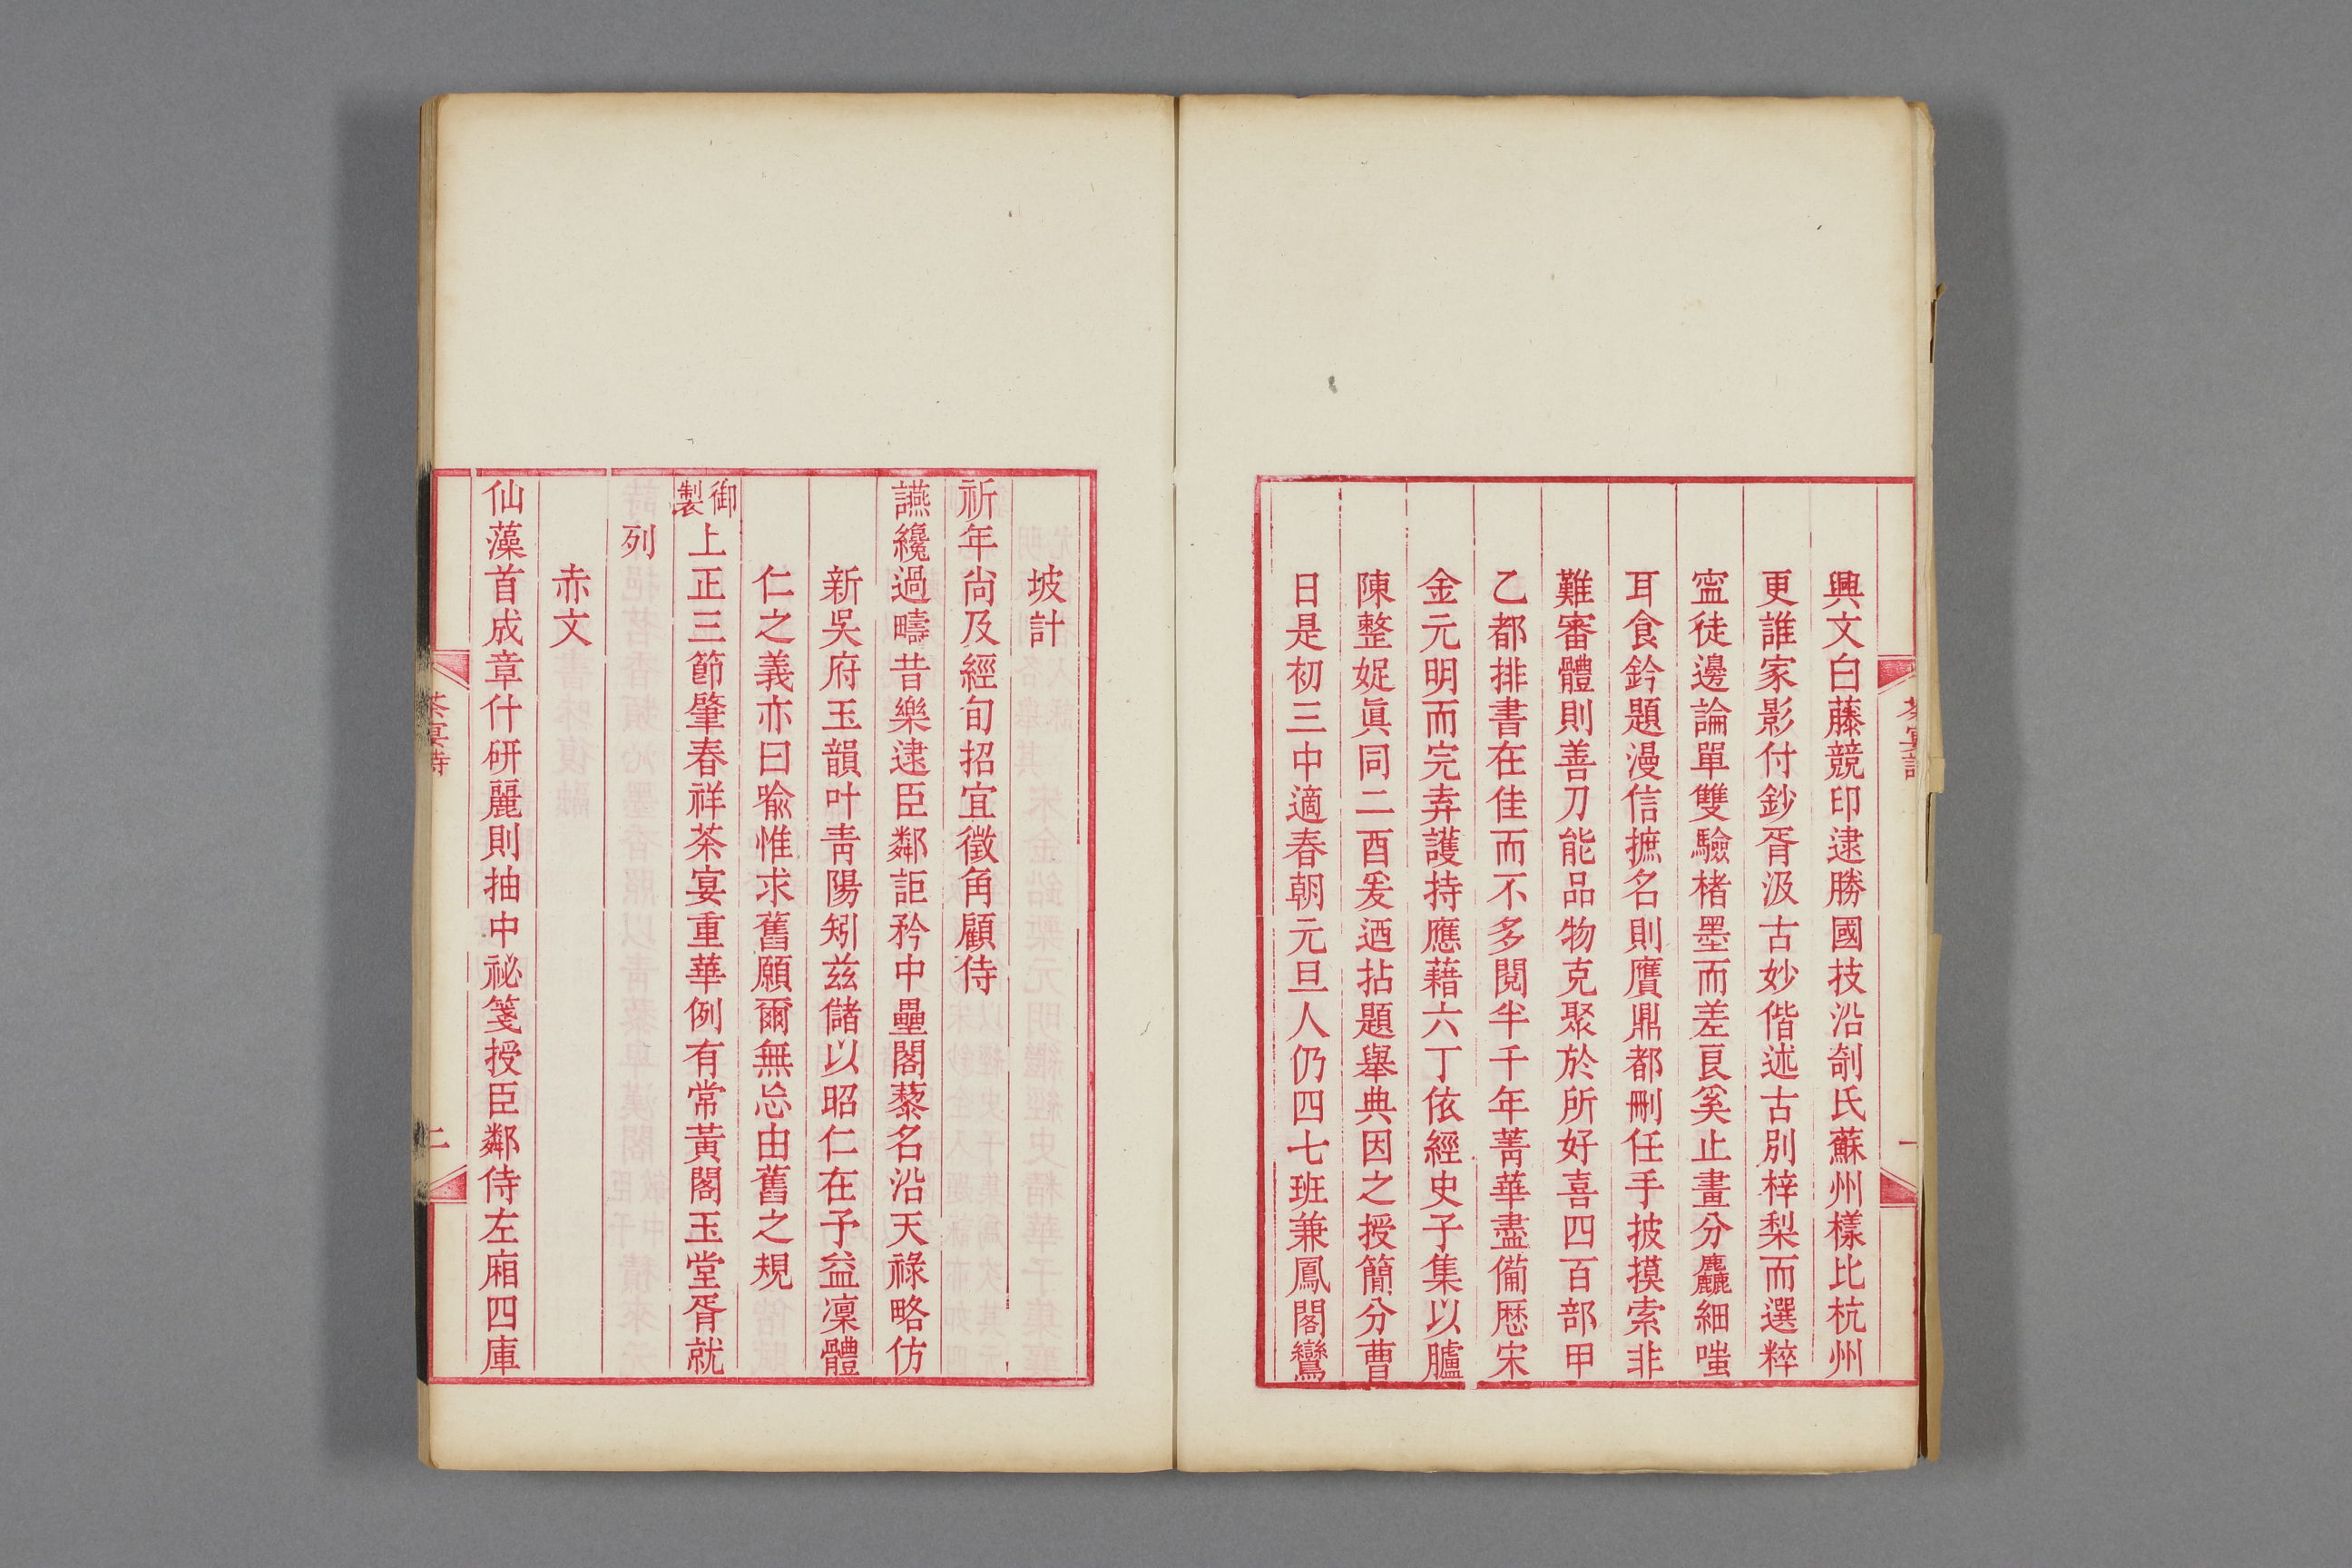 興文白藤競印逮勝國技沿剞氏蘇州樣比杭州
更誰家影付鈔胥汲古妙偕述古別梓梨而選粹
寍徒邊論單雙驗楮墨而差良奚止畫分麤細嗤
耳食鈐題漫信摭名則贋鼎都刪任手披摸索非
難審體則善刀能品物克聚於所好喜四百部甲
乙都排書在佳而不多閱半千年菁華盡備歴宋
金元明而完弆護持應藉六丁依經史子集以臚
陳整娖眞同二酉爰迺拈題舉典因之授簡分曹
日是初三中適春朝元旦人仍四七班兼鳳閣鸞
坡計
祈年尙及經旬招宜徵角顧侍
讌纔過疇昔樂逮臣鄰詎矜中壘閣藜名沿天祿略仿
新吳府玉韻叶靑陽矧兹儲以昭仁在予益凜體
仁之義亦曰喩惟求舊願爾無忘由舊之規
御製上正三節肇春祥茶宴重華例有常黃閣玉堂胥就
列
赤文
仙藻首成章什硏麗則抽中祕箋授臣鄰侍左廂四庫
茶宴詩
二